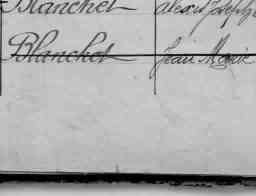 Blanchet
Blanchet Jean Marie